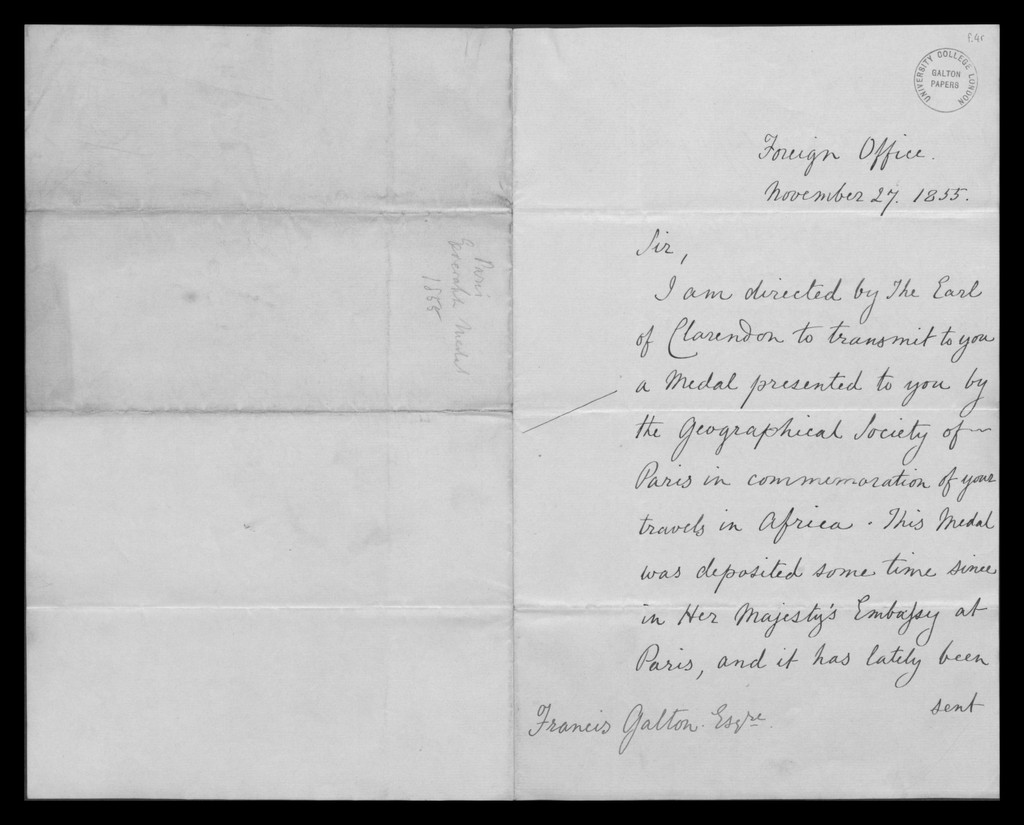 Paris
Medal
1855
f.4r
UNIVERSITY COLLEGE LONDON
GALTON
PAPERS
Foreign Office.
November 27. 1855.
Sir,
I am directed by The Earl
of Clarendon to transmit to you
a Medal presented to you by
the Geographical Society of
Paris in commemoration of your
travels in Africa. This Medal
was deposited some time since
in Her Majesty's Embassy at
Paris, and it has lately been
sent
Francis Galton Esqre.